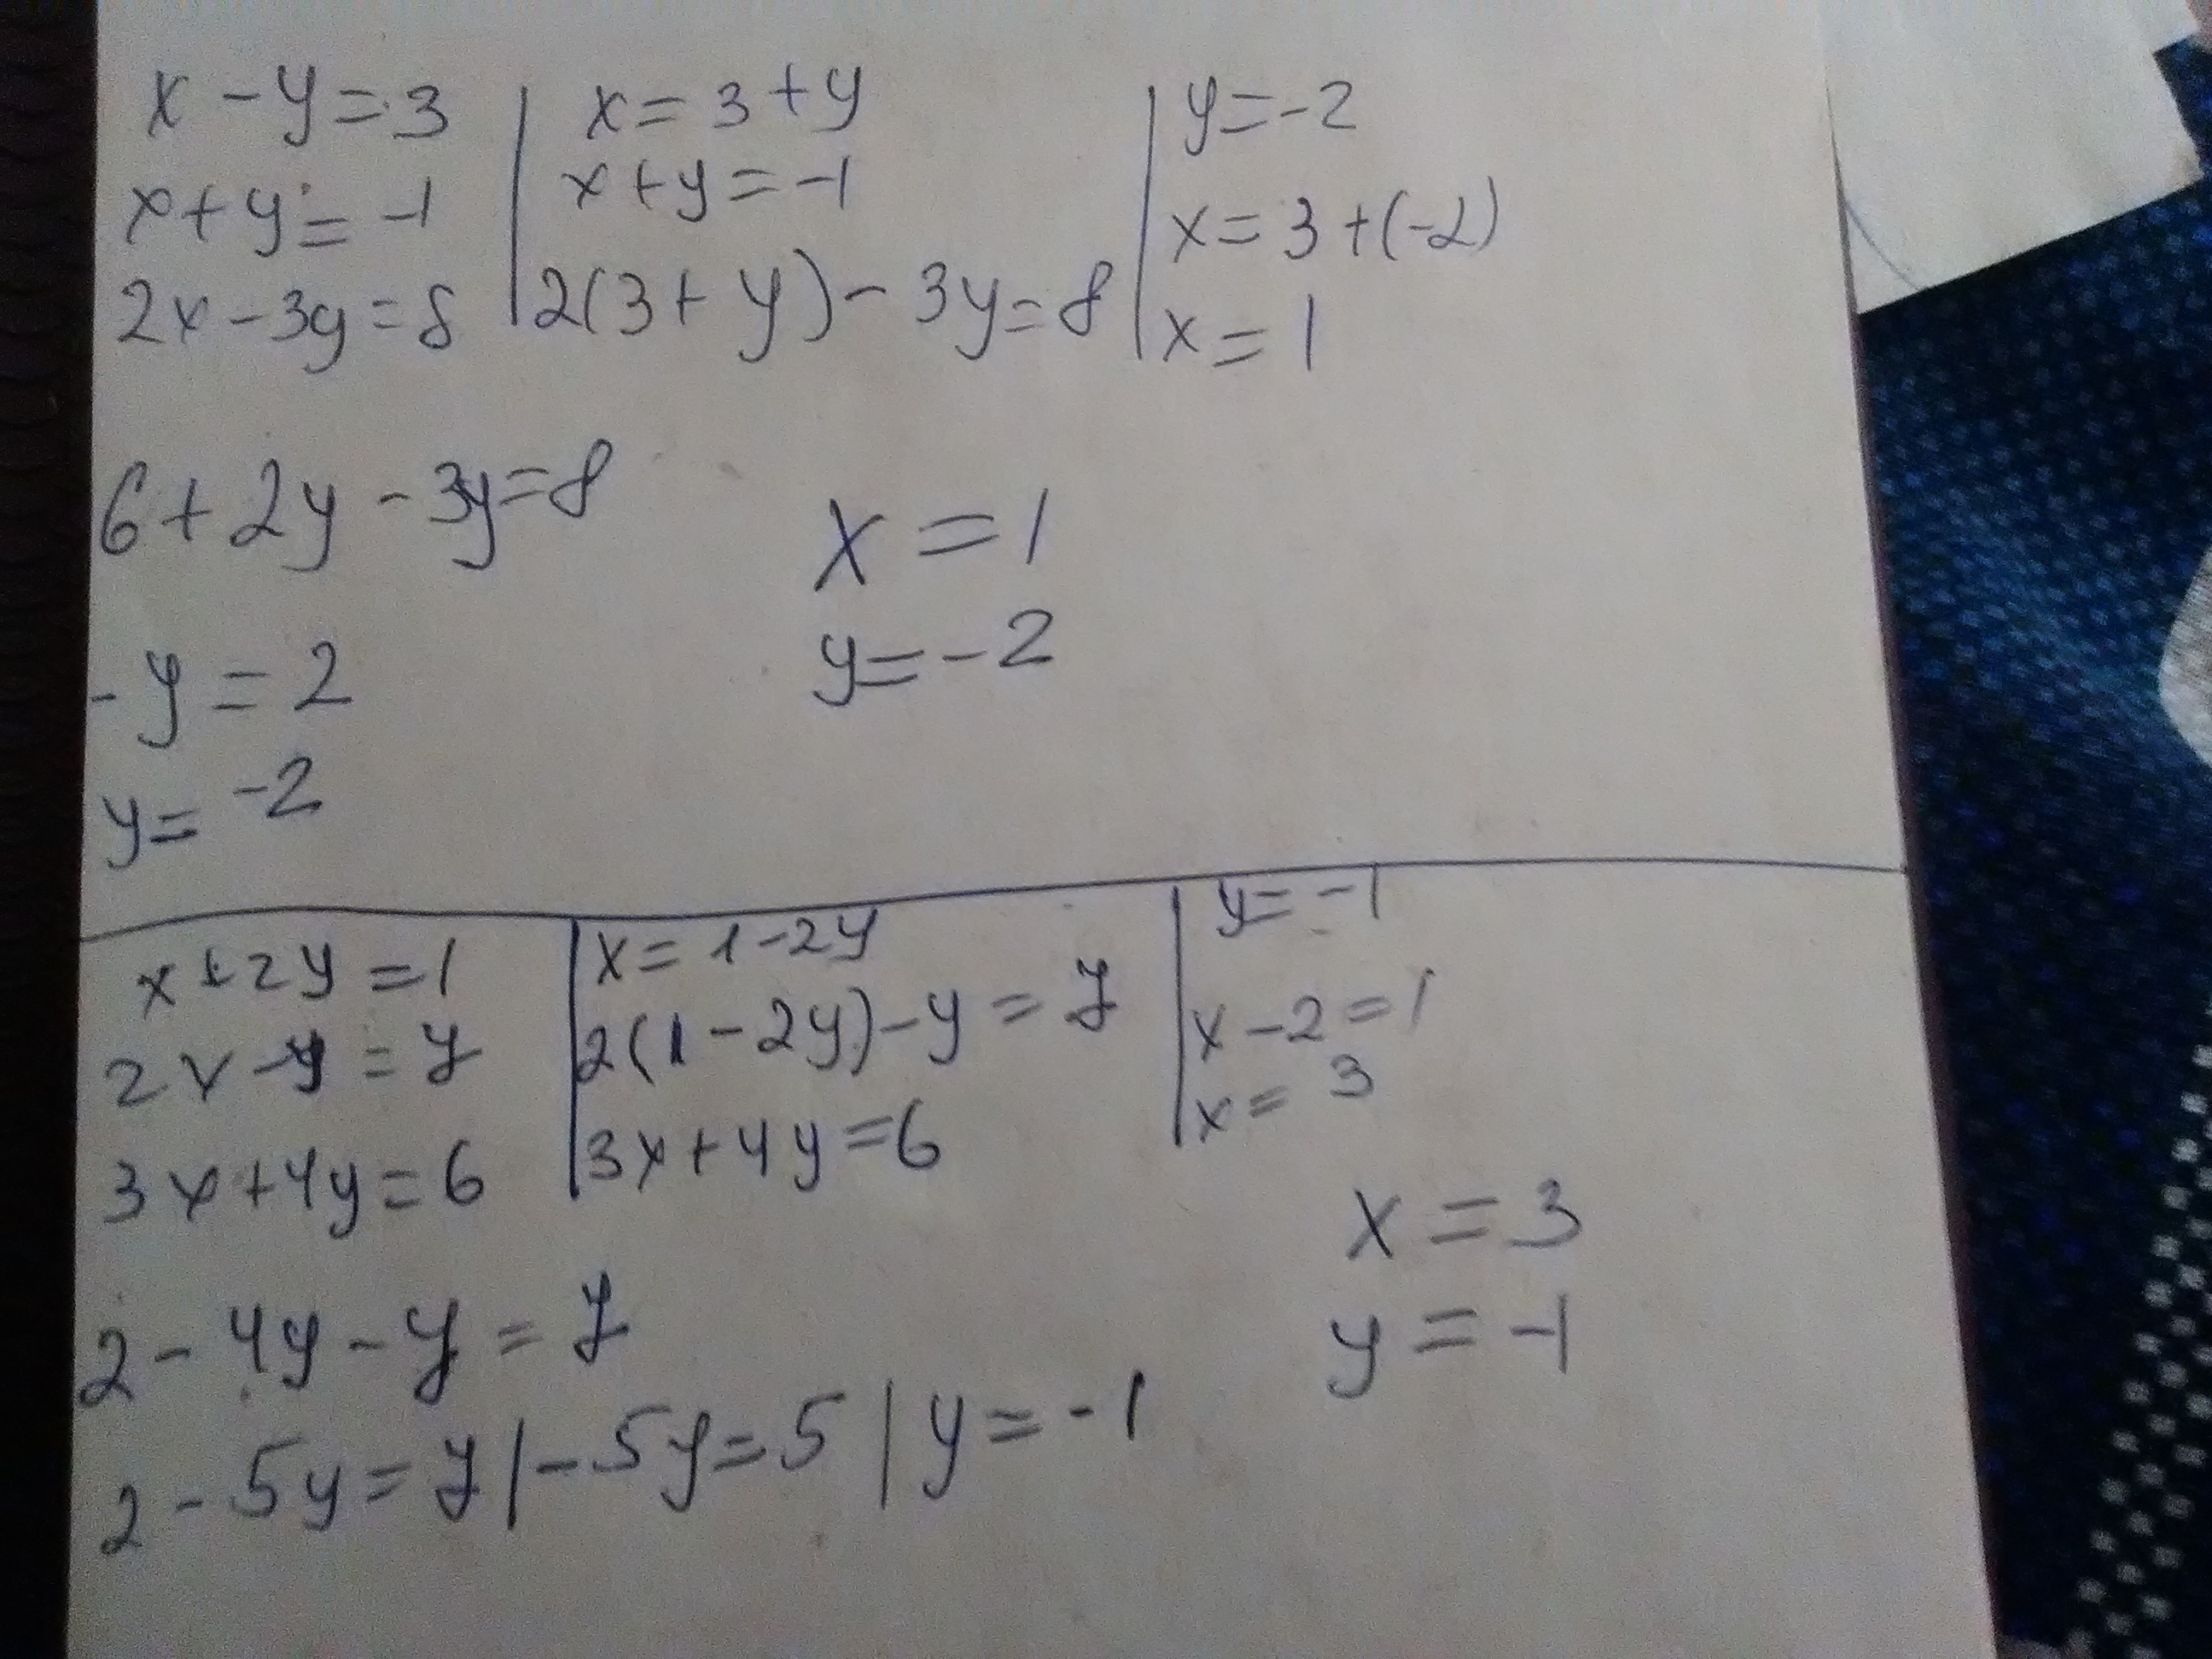 x - y = 3 | x = 3 + y | y = -2
x + y = -1 | x + y = -1 | x = 3 + (-2)
2x - 3y = 8 | 2(3 + y) - 3y = 8 | x = 1
6 + 2y - 3y = 8
x = 1
-y = 2
y = -2
y = -2
x + 2y = 1 | x = 1 - 2y | y = -1
2x - y = 7 | 2(1 - 2y) - y = 7 | x - 2 = 1
3x + 4y = 6 | 3x + 4y = 6 | x = 3
x = 3
2 - 4y - y = 7
y = -1
2 - 5y = 7 | -5y = 5 | y = -1